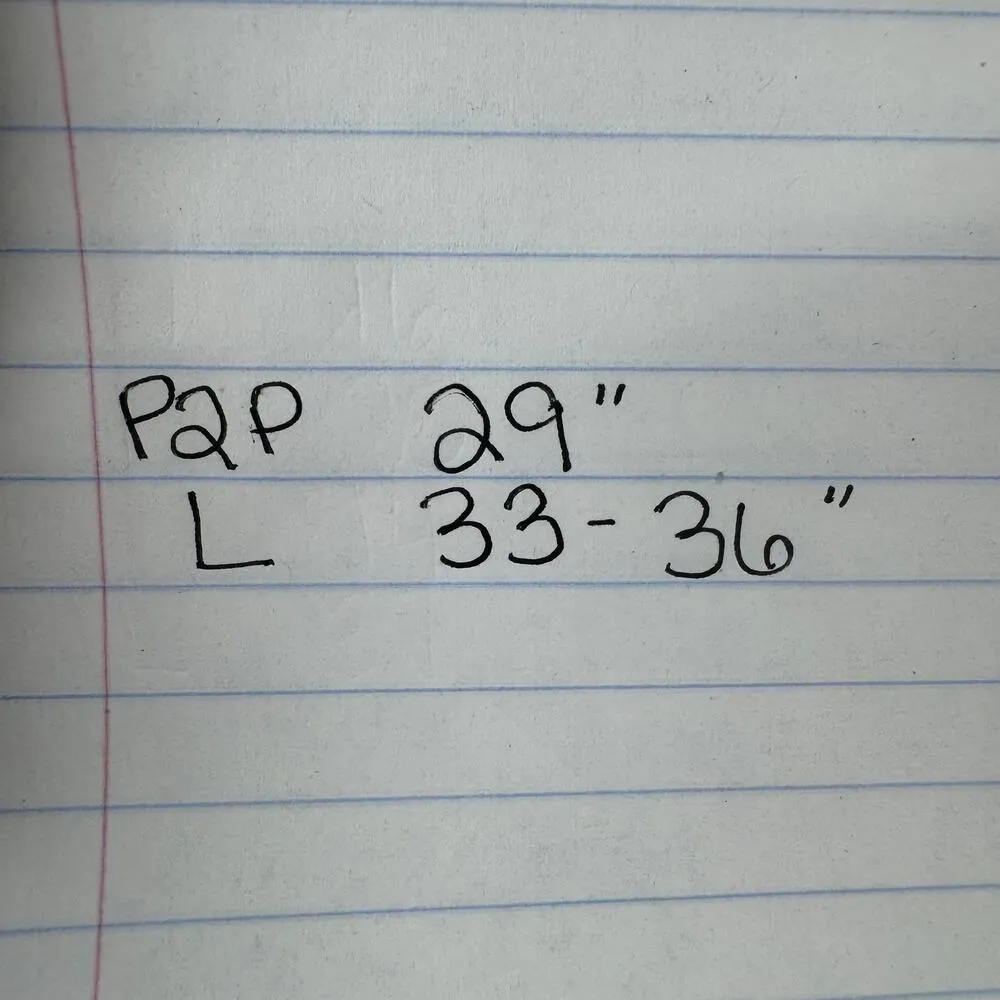 P2P 29"
L 33-36"